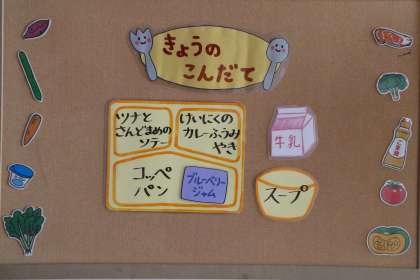 きょうの
こんだて
ツナと
さんどまめの
ソテー
けいにくの
カレーふうみ
やき
牛乳
コッペ
パン
ブルーベリー
ジャム
スープ